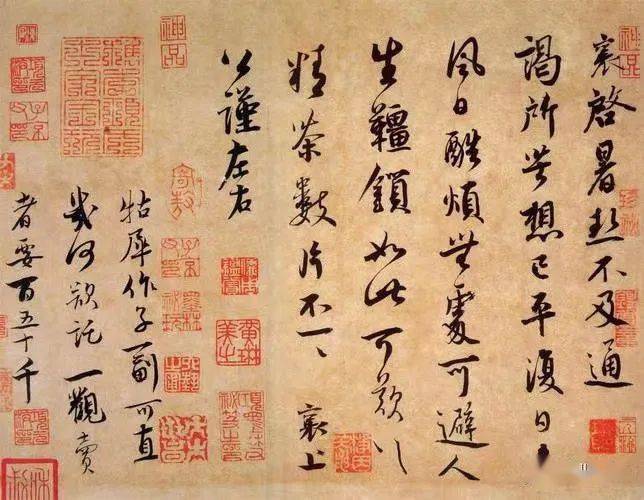 襄啓暑熱不及通
謁所苦想已平復日夕
風日酷煩無處可避人
生韁鎖如此可歎〻
精茶數片不一〻 襄上
公謹左右
牯犀作子一副可直
幾何欲託一觀賣
者要百五十千
神品
黄琳美之